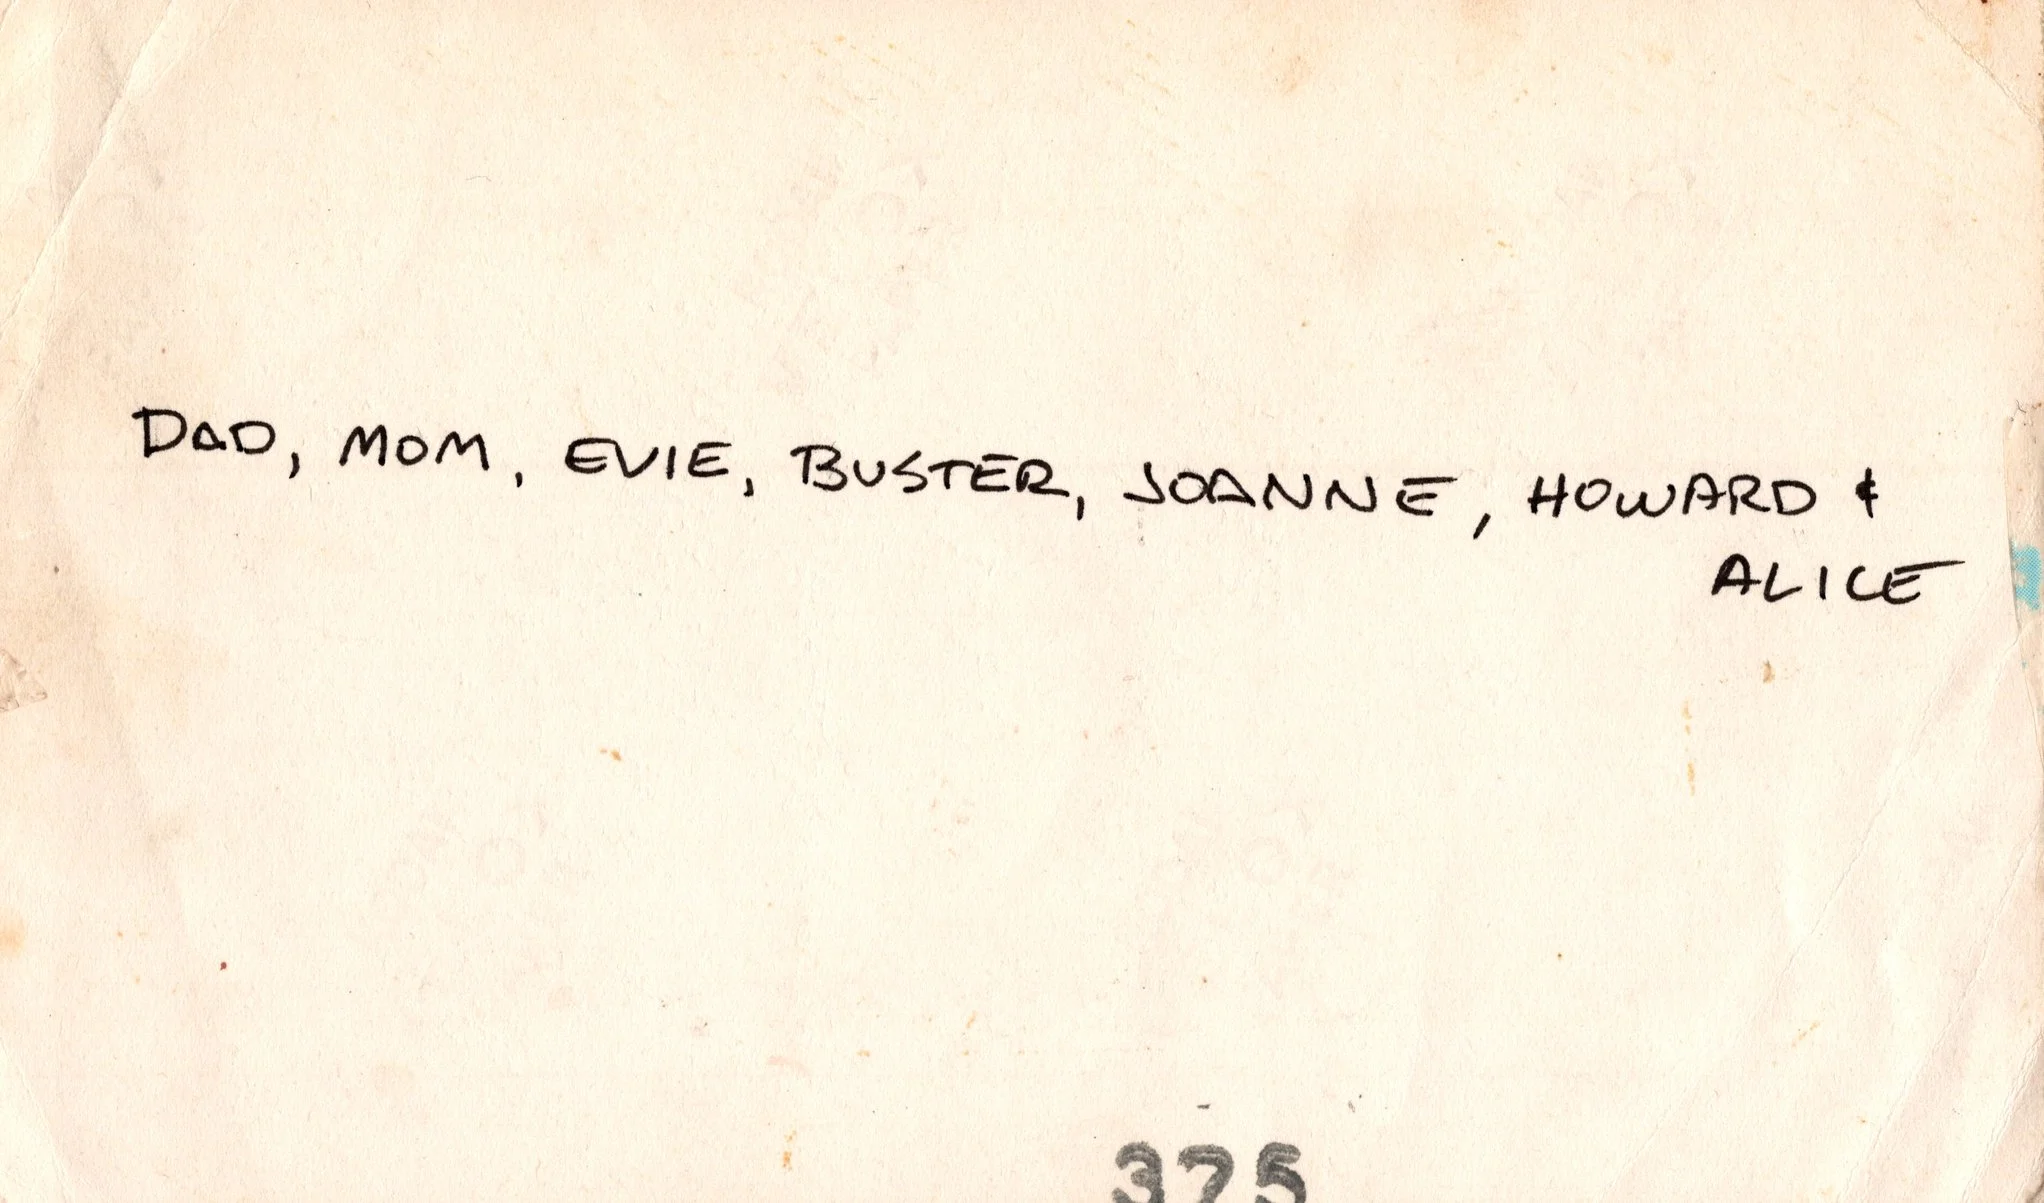 DAD, MOM, EVIE, BUSTER, JOANNE, HOWARD &
ALICE
375